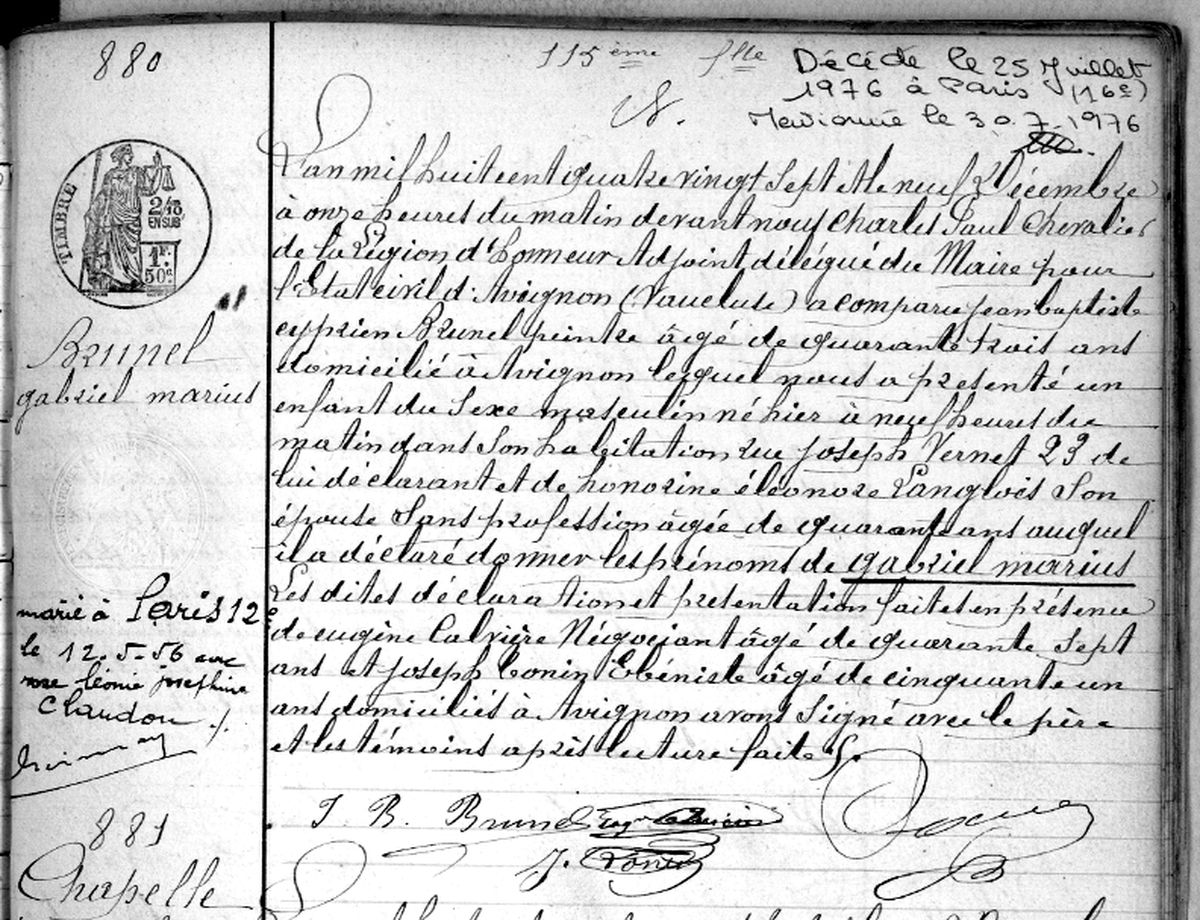 880
115ème flle
Décédé le 25 Juillet
1976 à Paris (16e)
Mentionné le 30.7.1976
TIMBRE
2/10
EN SUS
1F.
50c.
Brunel
gabriel marius
L'an mil huit cent quatre vingt sept et le neuf Décembre
à onze heures du matin devant nous Charles Paul Chevalier
de la Légion d'honneur Adjoint, délégué du Maire pour
l'Etat civil d'Avignon (Vaucluse) a comparu jean baptiste
cyprien Brunel peintre âgé de quarante trois ans
domicilié à Avignon lequel nous a presenté un
enfant du Sexe masculin né hier à neuf heures du
matin dans Son habitation rue joseph Vernet 23 de
lui déclarant et de honorine éléonore Langlois Son
épouse Sans profession âgée de quarante ans auquel
il a déclaré donner les prénoms de gabriel marius
Les dites déclaration et presentation faites en présence
de eugène Calvière Négociant âgé de quarante Sept
ans et joseph Conin Ebéniste âgé de cinquante un
ans domiciliés à Avignon avons Signé avec le père
et les témoins après lecture faite
marié à Paris 12e
le 12.5.56 avec
rose léonie josephine
Claudon
J. B. Brunel
J. Conin
881
Chapelle